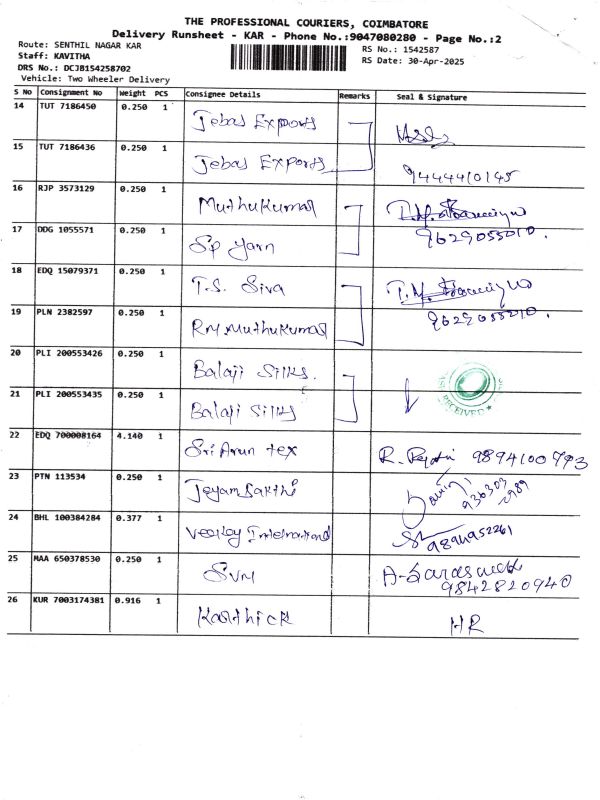 THE PROFESSIONAL COURIERS, COIMBATORE
Delivery Runsheet - KAR - Phone No.:9047080280 - Page No.:2
Route: SENTHIL NAGAR KAR
Staff: KAVITHA
DRS No.: DCJB154258702
Vehicle: Two Wheeler Delivery
RS No.: 1542587
RS Date: 30-Apr-2025
S No Consignment No Weight PCS Consignee Details Remarks Seal & Signature
14 TUT 7186450 0.250 1 Jebas Exports
15 TUT 7186436 0.250 1 Jebas Exports 9444410145
16 RJP 3573129 0.250 1 Muthukumar
17 DDG 1055571 0.250 1 Sp yarn 9629055010.
18 EDQ 15079371 0.250 1 T.S. Siva
19 PLN 2382597 0.250 1 RM.Muthukumar 9629055210.
20 PLI 200553426 0.250 1 Balaji Silks.
21 PLI 200553435 0.250 1 Balaji Silks RECEIVED
22 EDQ 700008164 4.140 1 Sri Arun tex 9894100793
23 PTN 113534 0.250 1 Jeyam Sakthi
24 BHL 100384284 0.377 1 International 9894952261
25 MAA 650378530 0.250 1 SVM 9842820940
26 KUR 7003174381 0.916 1 Karthick HR